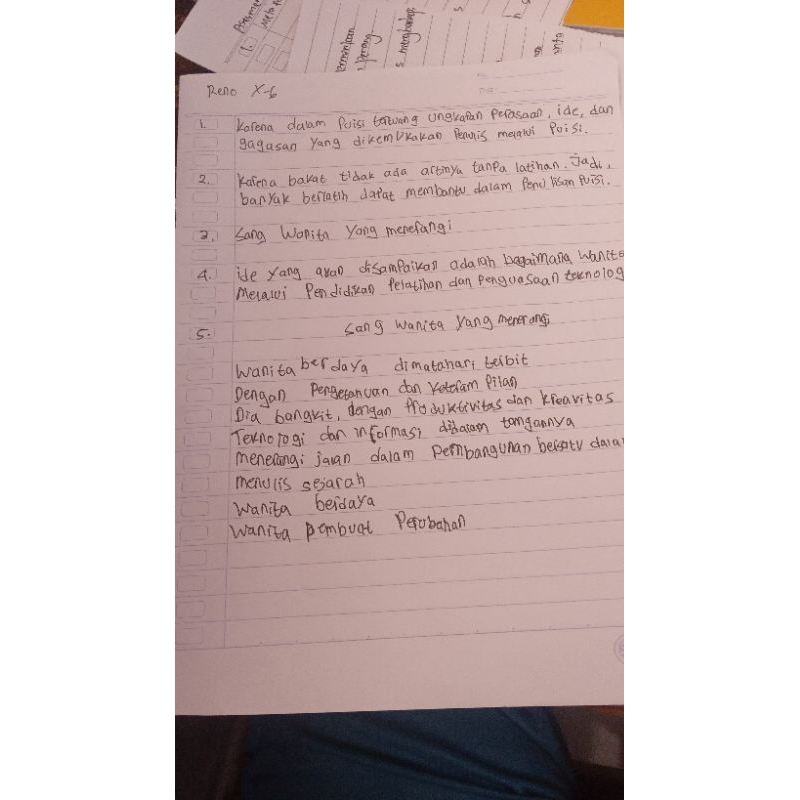 Reno X-6
1. Karena dalam Puisi tertuang Ungkapan Perasaan, ide, dan
gagasan Yang dikemukakan Penulis melalui Puisi.
2. Karena bakat tidak ada artinya tanpa latihan. Jadi,
banyak berlatih dapat membantu dalam Penulisan Puisi.
3. Sang Wanita Yang menerangi
4. ide Yang akan disampaikan adalah bagaimana Wanita
Melalui Pendidikan Pelatihan dan Penguasaan teknolog
5. Sang Wanita Yang menerangi
Wanita berdaya dimatahari terbit
Dengan Pengetahuan dan Keterampilan
Dia bangkit, dengan Produktivitas dan kreavitas
Teknologi dan informasi didalam tangannya
menerangi jalan dalam Pembangunan bersatu dala
menulis sejarah
Wanita berdaya
Wanita pembuat Perubahan